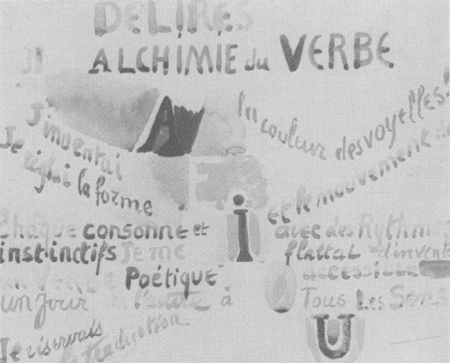 DELIRES
II
ALCHIMIE du VERBE
J'inventai A la couleur des voyelles!
Je réglai la forme et le mouvement de
Chaque consonne et i avec des Rythmes
instinctifs Je me flattai d'invente
un Verbe Poétique accessible
un Jour à Tous Les Sens
Je réservais la traduction U